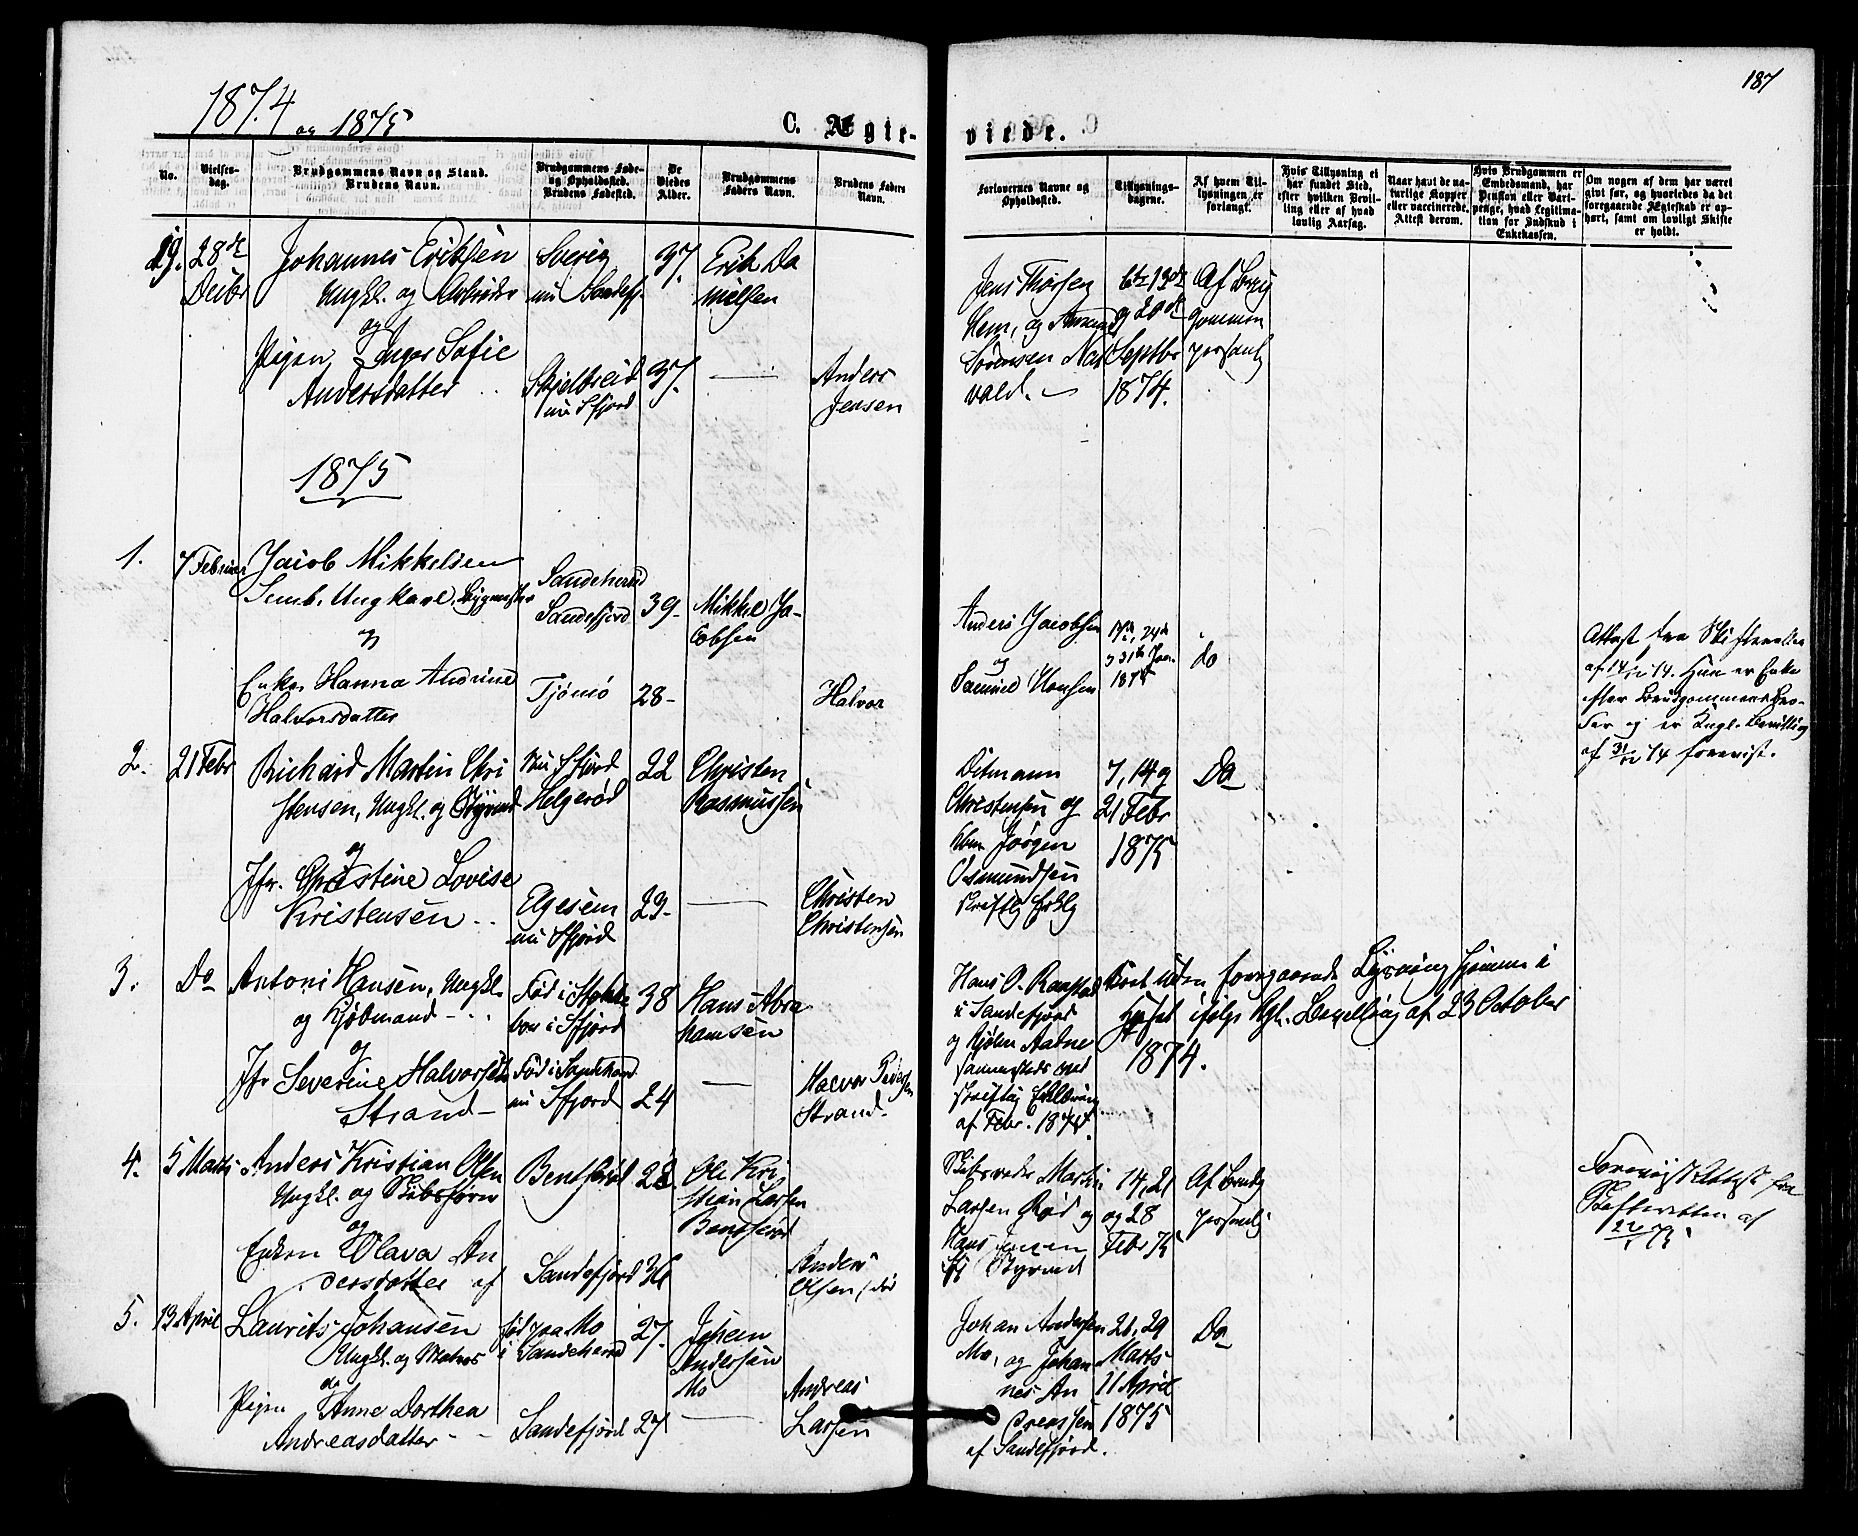 187
1874 og 1875
C. Ægte-
viede.
No.
Vielses-
dag.
Brudgommens Navn og Stand.
Brudens Navn.
Brudgommens Føde-
og Opholdssted.
Brudens Fødested.
De
Viedes
Alder.
Brudgommens
Faders Navn.
Brudens Faders
Navn.
Forlovernes Navne og
Opholdssted.
Tillysnings-
dagene.
Af hvem Til-
lysningen er
forlangt.
Hvis Tillysning ei
har fundet Sted,
efter hvilken Bevil-
ling eller af hvad
lovlig Aarsag.
Naar havt de na-
turlige Kopper
eller vaccinerede.
Attest derom.
Hvis Brudgommen er
Embedsmand, har
Pension eller Vart-
penge, hvad Legitima-
tion for Indskud i
Enkekassen.
Om nogen af dem har været
givt før, og hvorledes da det
foregaaende Ægteskab er op-
hørt, samt om lovligt Skifte
er holdt.
19.
28de
Decbr
Johannes Eriksen
Ungkl. og Arbeider
og
Pigen Inger Sofie
Andersdatter
Sverig
nu Sandefj.
Skjelbreid
nu Sfjord
37.
37.
Erik Da
nielsen
Anders
Jensen
Jens Thorsen
Hem, og
Sørensen
vald.
6te 13de
og 20de
Septbr
1874.
Af Brud
gommen
personlig
1875
1.
7 Februar
Jacob Mikkelsen
Semb. Ungkarl,
og
Enke Hanna Andrine
Halvorsdatter
Sandeherred
Sandefjord
Tjømø
39-
28-
Mikkel Ja-
cobsen
Halvor
Anders Jacobsen
og
17de, 24de
og 31te Jan.
1875
do
Attest fra Skifteretten
af 14/12 74. Hun er Enke
efter Brudgommens Bro-
der og er Kngl. Bevilling
af 31/12 74 forevist.
2.
21 Febr
Richard Martin Chri
stensen, Ungkl. og Styrmd
og
Jfr. Christine Lovise
Kristensen
Nu Sfjord
Helgerød
Elgesem
nu Sfjord
22
23-
Christen
Rasmussen
Christen
Christensen
Ditmann
Christensen og
Jørgen
Osmundsen
skriftlig Erklg
7, 14 og
21 Febr
1875
Do
3.
Do
Antoni Hansen, Ungkl.
og Kjøbmand
og
Jfr Severine Halvorsen
Strand
Fød i Stokke
bor i Sfjord
Fød i Sandeherd
nu Sfjord
38
24
Hans Abra
hamsen
Halvor Pedersen
Strand
Hans O.
i Sandefjord
og
sammesteds med
skriftlig Erklæring
af Febr. 1875.
uden foregaaende Lysning hjemme i
Huset ifølge Kgl. Bevilling af 23 October
1874.
4.
5 Marts
Anders Kristian Olsen
Ungkl. og Skibsfører
og
Enken Olava An
dersdatter af
Bentserød
Sandefjord
28
36
Ole Kri
stian Larsen
Bentserød
Anders
Olsen, død
Skibsreder Martin
Larsen Rød og
Hans Jensen
Styrmd
14, 21
og 28
Febr 75
Af Brudg
personlig
Forevist Attest fra
Skifteretten af
5.
13 April
Laurits Johansen
Ungkl. og Matros
og
Pigen Anne Dorthea
Andreasdatter
fød paa Mo
i Sandeherred
Sandefjord
27.
27
Johan
Andersen
Mo
Andreas
Larsen
Johan Andersen
Mo, og Johan
nes An
dreassen
af Sandefjord.
26, 29
Marts
11 April
1875
Do